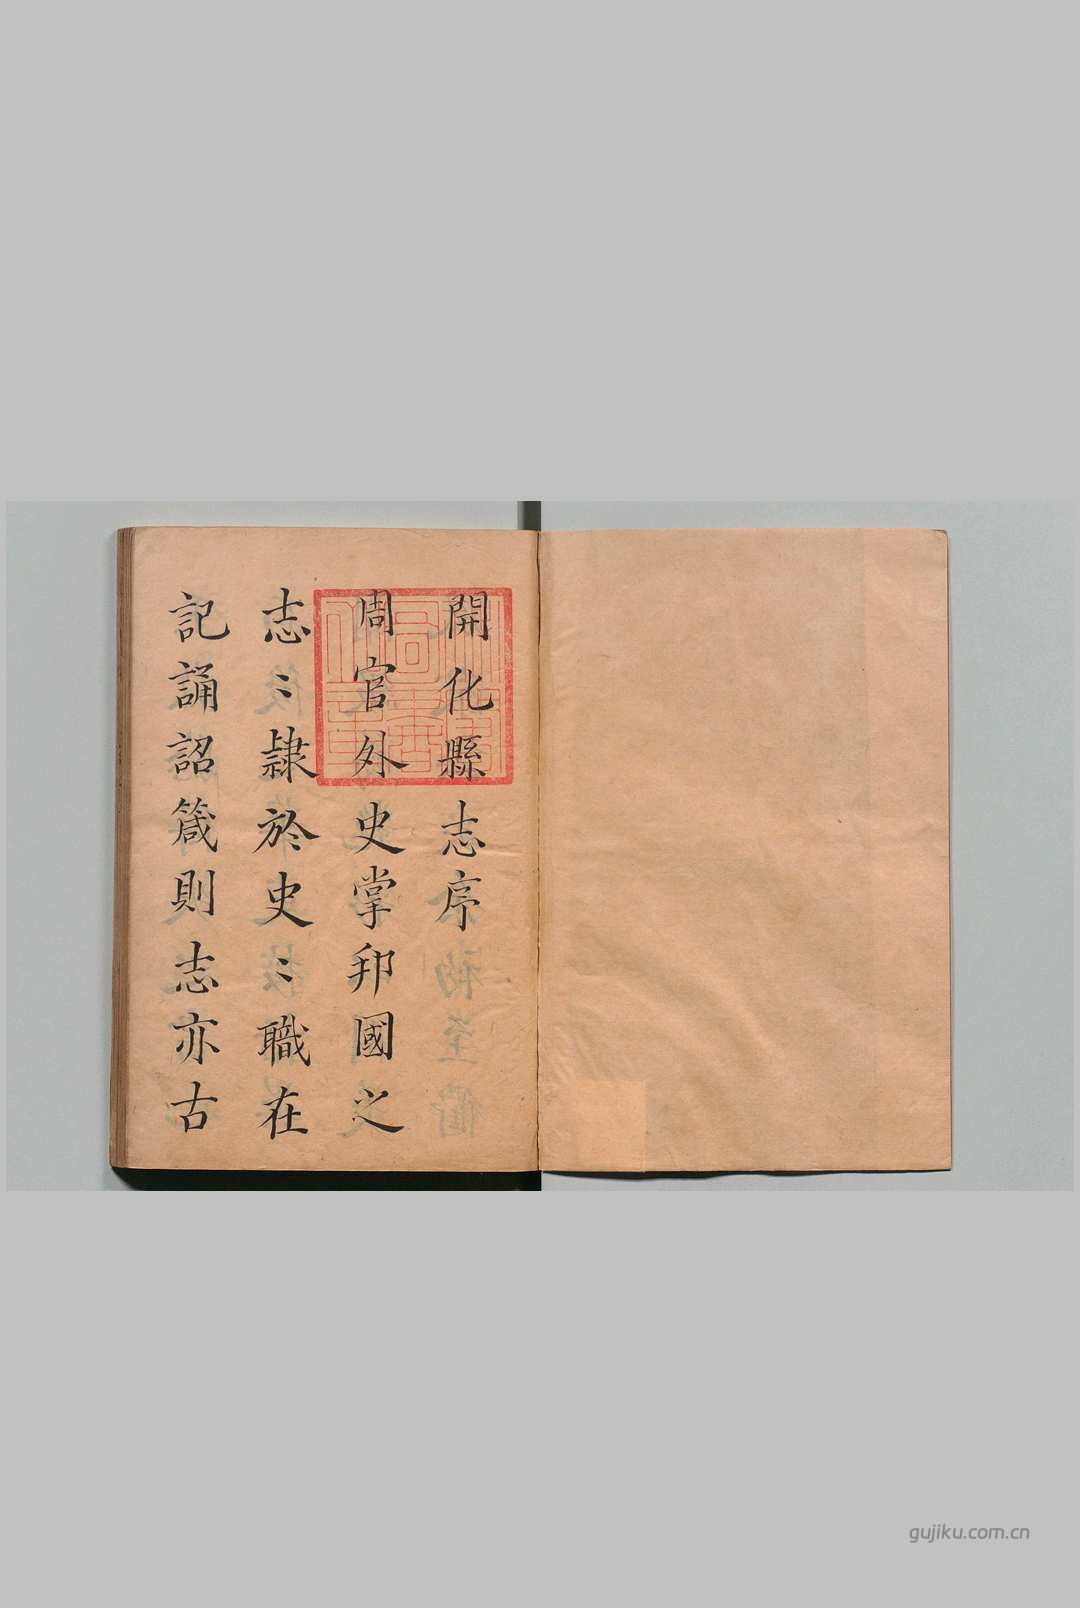 開化縣志序
周官外史掌邦國之
志〻隷於史〻職在
記誦詔箴則志亦古
gujiku.com.cn